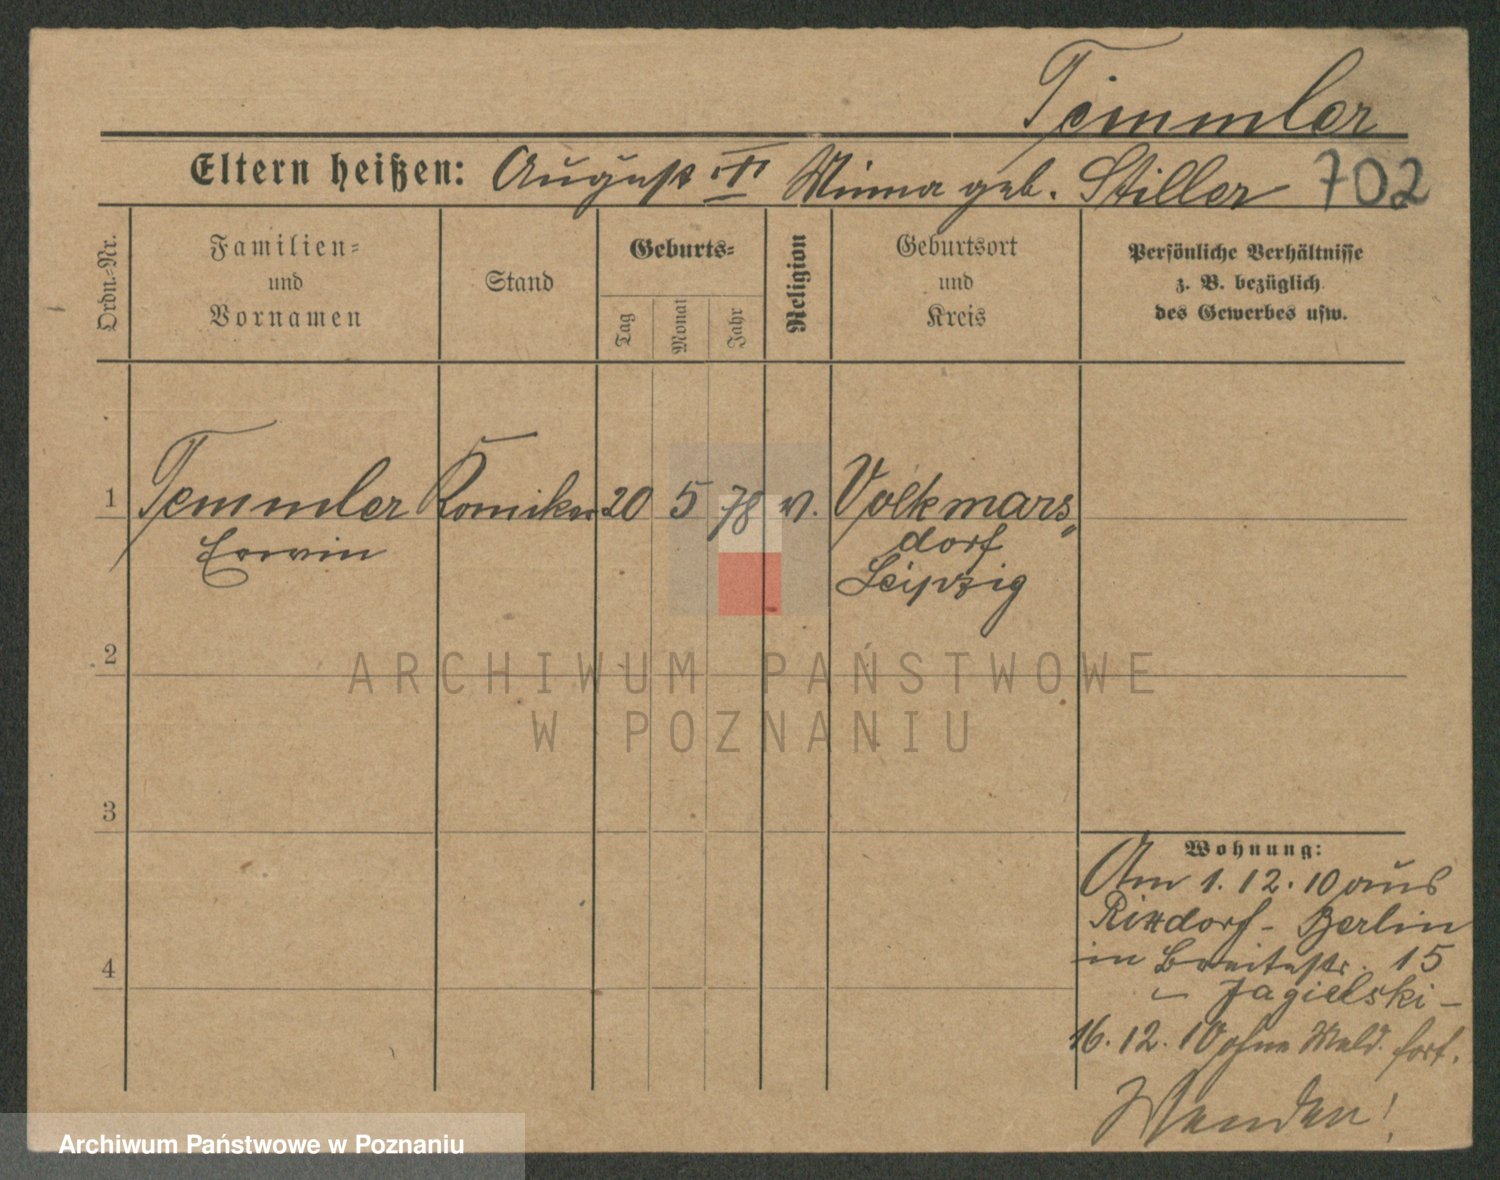 Temmler
Eltern heißen: August † Minna geb. Stiller 702
Ordn.-Nr.
Familien-
und
Vornamen
Stand
Geburts-
Tag
Monat
Jahr
Religion
Geburtsort
und
Kreis
Persönliche Verhältnisse
z. B. bezüglich
des Gewerbes usw.
1 Temmler Komiker 20 5 78 Volkmars„
Erwin dorf
Leipzig
2
ARCHIWUM PAŃSTWOWE
W POZNANIU
3
Wohnung:
Am 1. 12. 10 aus
Rixdorf - Berlin
in Breitestr. 15
- Jagielski -
4
16. 12. 10 ohne Meld. fort.
Wenden!
Archiwum Państwowe w Poznaniu